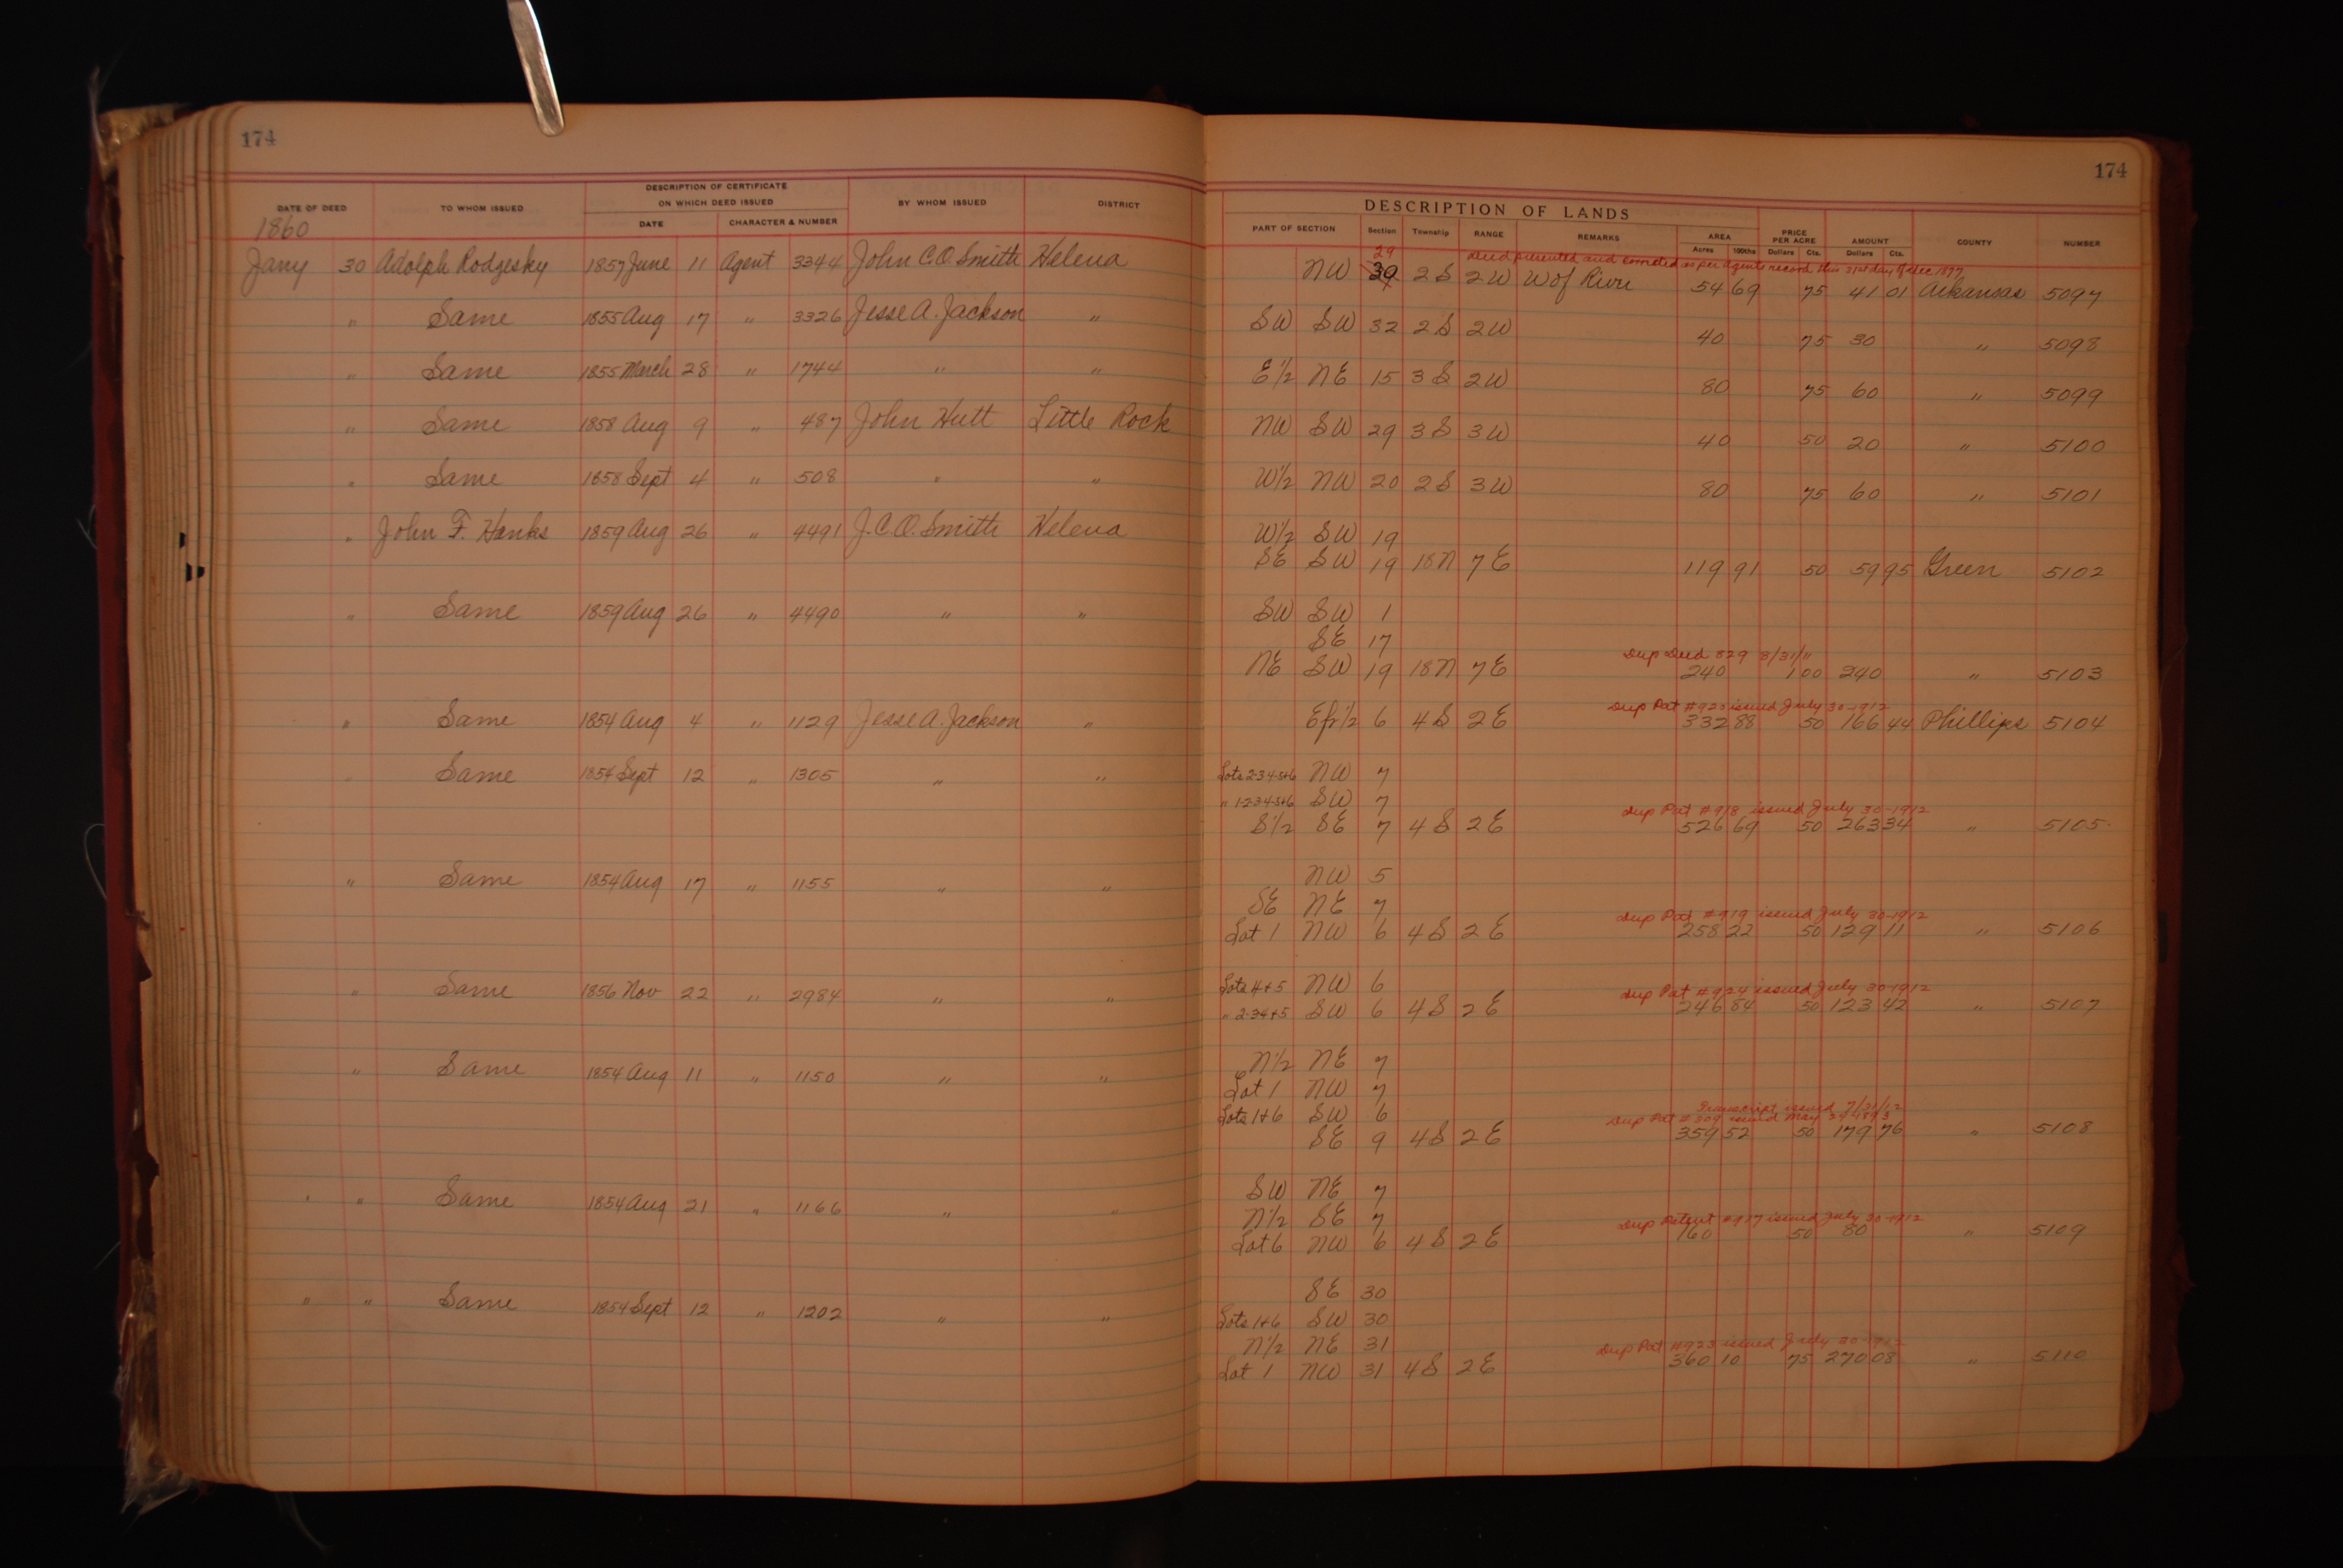 174
174
DATE OF DEED TO WHOM ISSUED DESCRIPTION OF CERTIFICATE ON WHICH DEED ISSUED BY WHOM ISSUED DISTRICT
DATE CHARACTER & NUMBER
DESCRIPTION OF LANDS
PART OF SECTION Section Township RANGE REMARKS AREA PRICE PER ACRE AMOUNT COUNTY NUMBER
Acres 100ths Dollars Cts. Dollars Cts.
1860
29 Deed presented and corrected as per agents record this 31st day of Dec 1897
Jany 30 Adolph Rodgesky 1857 June 11 Agent 3344 John C.O. Smith Helena NW 30 2S 2W W of River 54 69 75 41 01 Arkansas 5097
" Same 1855 Aug 17 " 3326 Jesse A. Jackson " SW SW 32 2S 2W 40 75 30 " 5098
" Same 1855 March 28 " 1744 " " E1/2 NE 15 3S 2W 80 75 60 " 5099
" Same 1858 Aug 9 " 487 John Hutt Little Rock NW SW 29 3S 3W 40 50 20 " 5100
" Same 1858 Sept 4 " 508 " " W1/2 NW 20 2S 3W 80 75 60 " 5101
" John F. Hanks 1859 Aug 26 " 4491 J.C.O. Smith Helena W1/2 SW 19
SE SW 19 18N 7E 119 91 50 59 95 Green 5102
" Same 1859 Aug 26 " 4490 " " SW SW 1
SE 17
Dup Deed 829 8/31/11
NE SW 19 18N 7E 240 1 00 240 " 5103
Dup Pat #923 issued July 30-1912
" Same 1854 Aug 4 " 1129 Jesse A. Jackson " E fr 1/2 6 4S 2E 332 88 50 166 44 Phillips 5104
" Same 1854 Sept 12 " 1305 " " Lots 2-3-4-5+6 NW 7
" 1-2-3-4-5+6 SW 7
Dup Pat #918 issued July 30-1912
S1/2 SE 7 4S 2E 526 69 50 263 34 " 5105
" Same 1854 Aug 17 " 1155 " " NW 5
SE NE 7
Dup Pat #919 issued July 30-1912
Lot 1 NW 6 4S 2E 258 22 50 129 11 " 5106
" Same 1856 Nov 22 " 2984 " " Lots 4+5 NW 6
Dup Pat #924 issued July 30-1912
" 2-3-4+5 SW 6 4S 2E 246 84 50 123 42 " 5107
" Same 1854 Aug 11 " 1150 " " N1/2 NE 7
Lot 1 NW 7
Lots 1+6 SW 6
Transcript issued 7/31/12
Dup Pat # issued May
SE 9 4S 2E 359 52 50 179 76 " 5108
" Same 1854 Aug 21 " 1166 " " SW NE 7
N1/2 SE 7
Dup Patent #917 issued July 30-1912
Lot 6 NW 6 4S 2E 160 50 80 " 5109
" " Same 1854 Sept 12 " 1202 " " SE 30
Lots 1+6 SW 30
N1/2 NE 31
Dup Pat #923 issued July
Lot 1 NW 31 4S 2E 360 10 75 270 08 " 5110